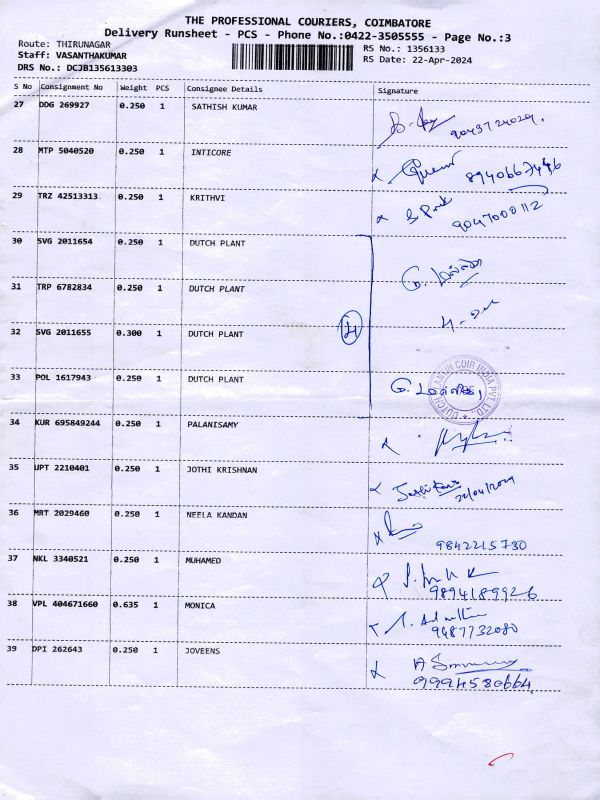 THE PROFESSIONAL COURIERS, COIMBATORE
Delivery Runsheet - PCS - Phone No.:0422-3505555 - Page No.:3
Route: THIRUNAGAR
RS No.: 1356133
Staff: VASANTHAKUMAR
RS Date: 22-Apr-2024
DRS No.: DCJB135613303
S No Consignment No Weight PCS Consignee Details Signature
27 DDG 269927 0.250 1 SATHISH KUMAR
9043724029.
28 MTP 5040520 0.250 1 INTICORE
8940667446
29 TRZ 42513313 0.250 1 KRITHVI
9047000112
30 SVG 2011654 0.250 1 DUTCH PLANT
31 TRP 6782834 0.250 1 DUTCH PLANT
32 SVG 2011655 0.300 1 DUTCH PLANT
33 POL 1617943 0.250 1 DUTCH PLANT
34 KUR 695849244 0.250 1 PALANISAMY
35 UPT 2210401 0.250 1 JOTHI KRISHNAN
22/04/2024
36 MRT 2029460 0.250 1 NEELA KANDAN
9842215780
37 NKL 3340521 0.250 1 MUHAMED
9894189926
38 VPL 404671660 0.635 1 MONICA
9487732080
39 DPI 262643 0.250 1 JOVEENS
9994580664